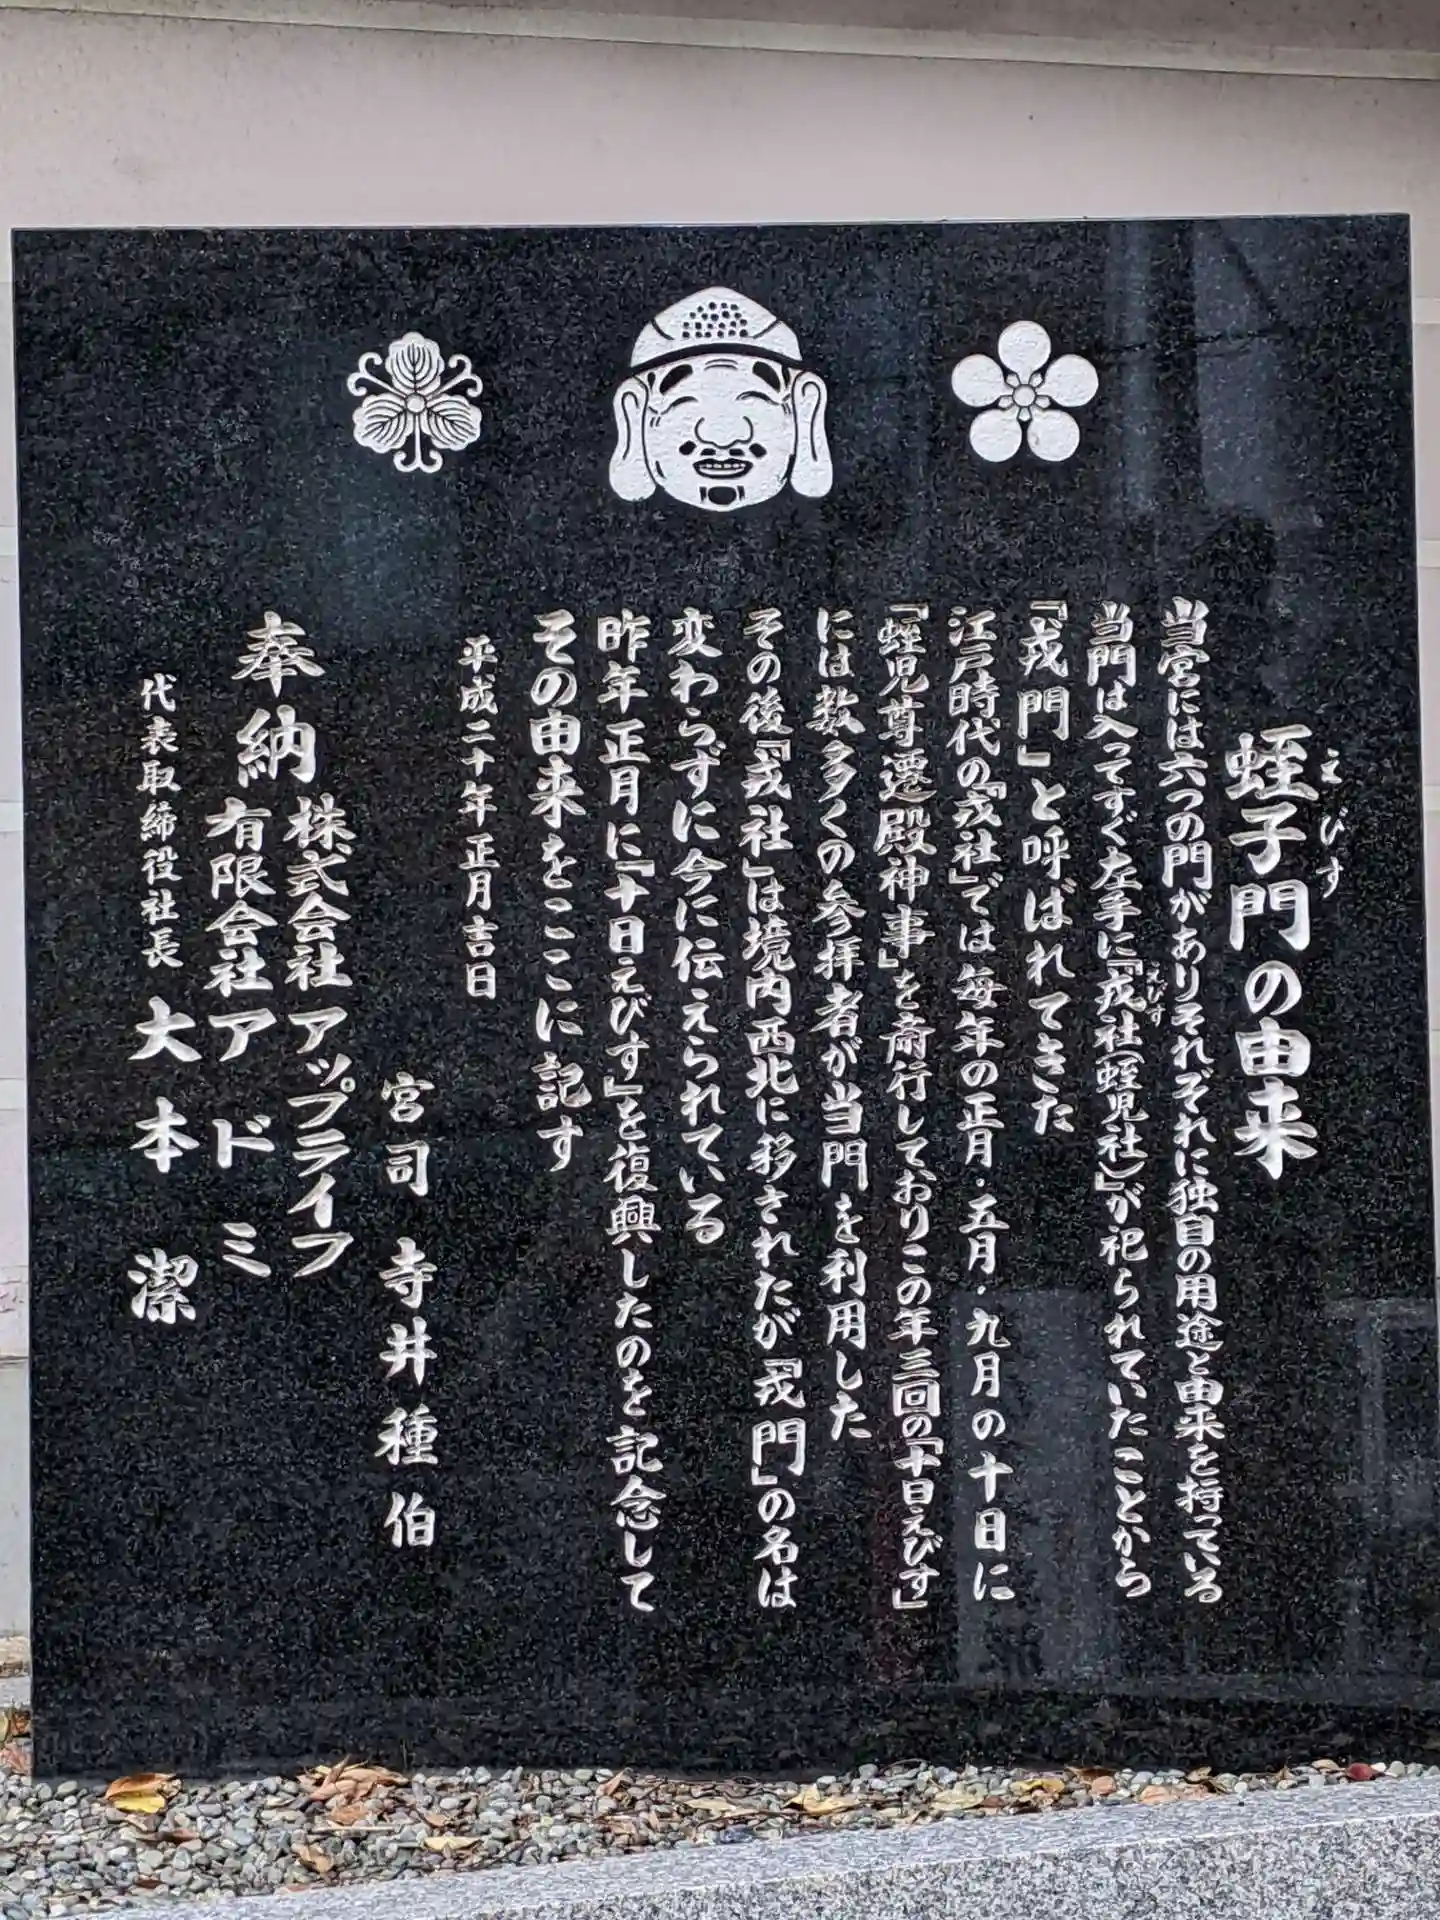 蛭子門の由来
えびす
当宮には六つの門がありそれぞれに独自の用途と由来を持っている
当門は入ってすぐ左手に『戎社(蛭児社)』が祀られていたことから
えびす
『戎門』と呼ばれてきた
江戸時代の『戎社』では毎年の正月・五月・九月の十日に
『蛭児尊遷殿神事』を斎行しておりこの年三回の『十日えびす』
には数多くの参拝者が当門を利用した
その後『戎社』は境内西北に移されたが『戎門』の名は
変わらずに今に伝えられている
昨年正月に『十日えびす』を復興したのを記念して
その由来をここに記す
平成二十年正月吉日
宮司 寺井種伯
奉納 株式会社アップライフ
有限会社アドミ
代表取締役社長 大本 潔